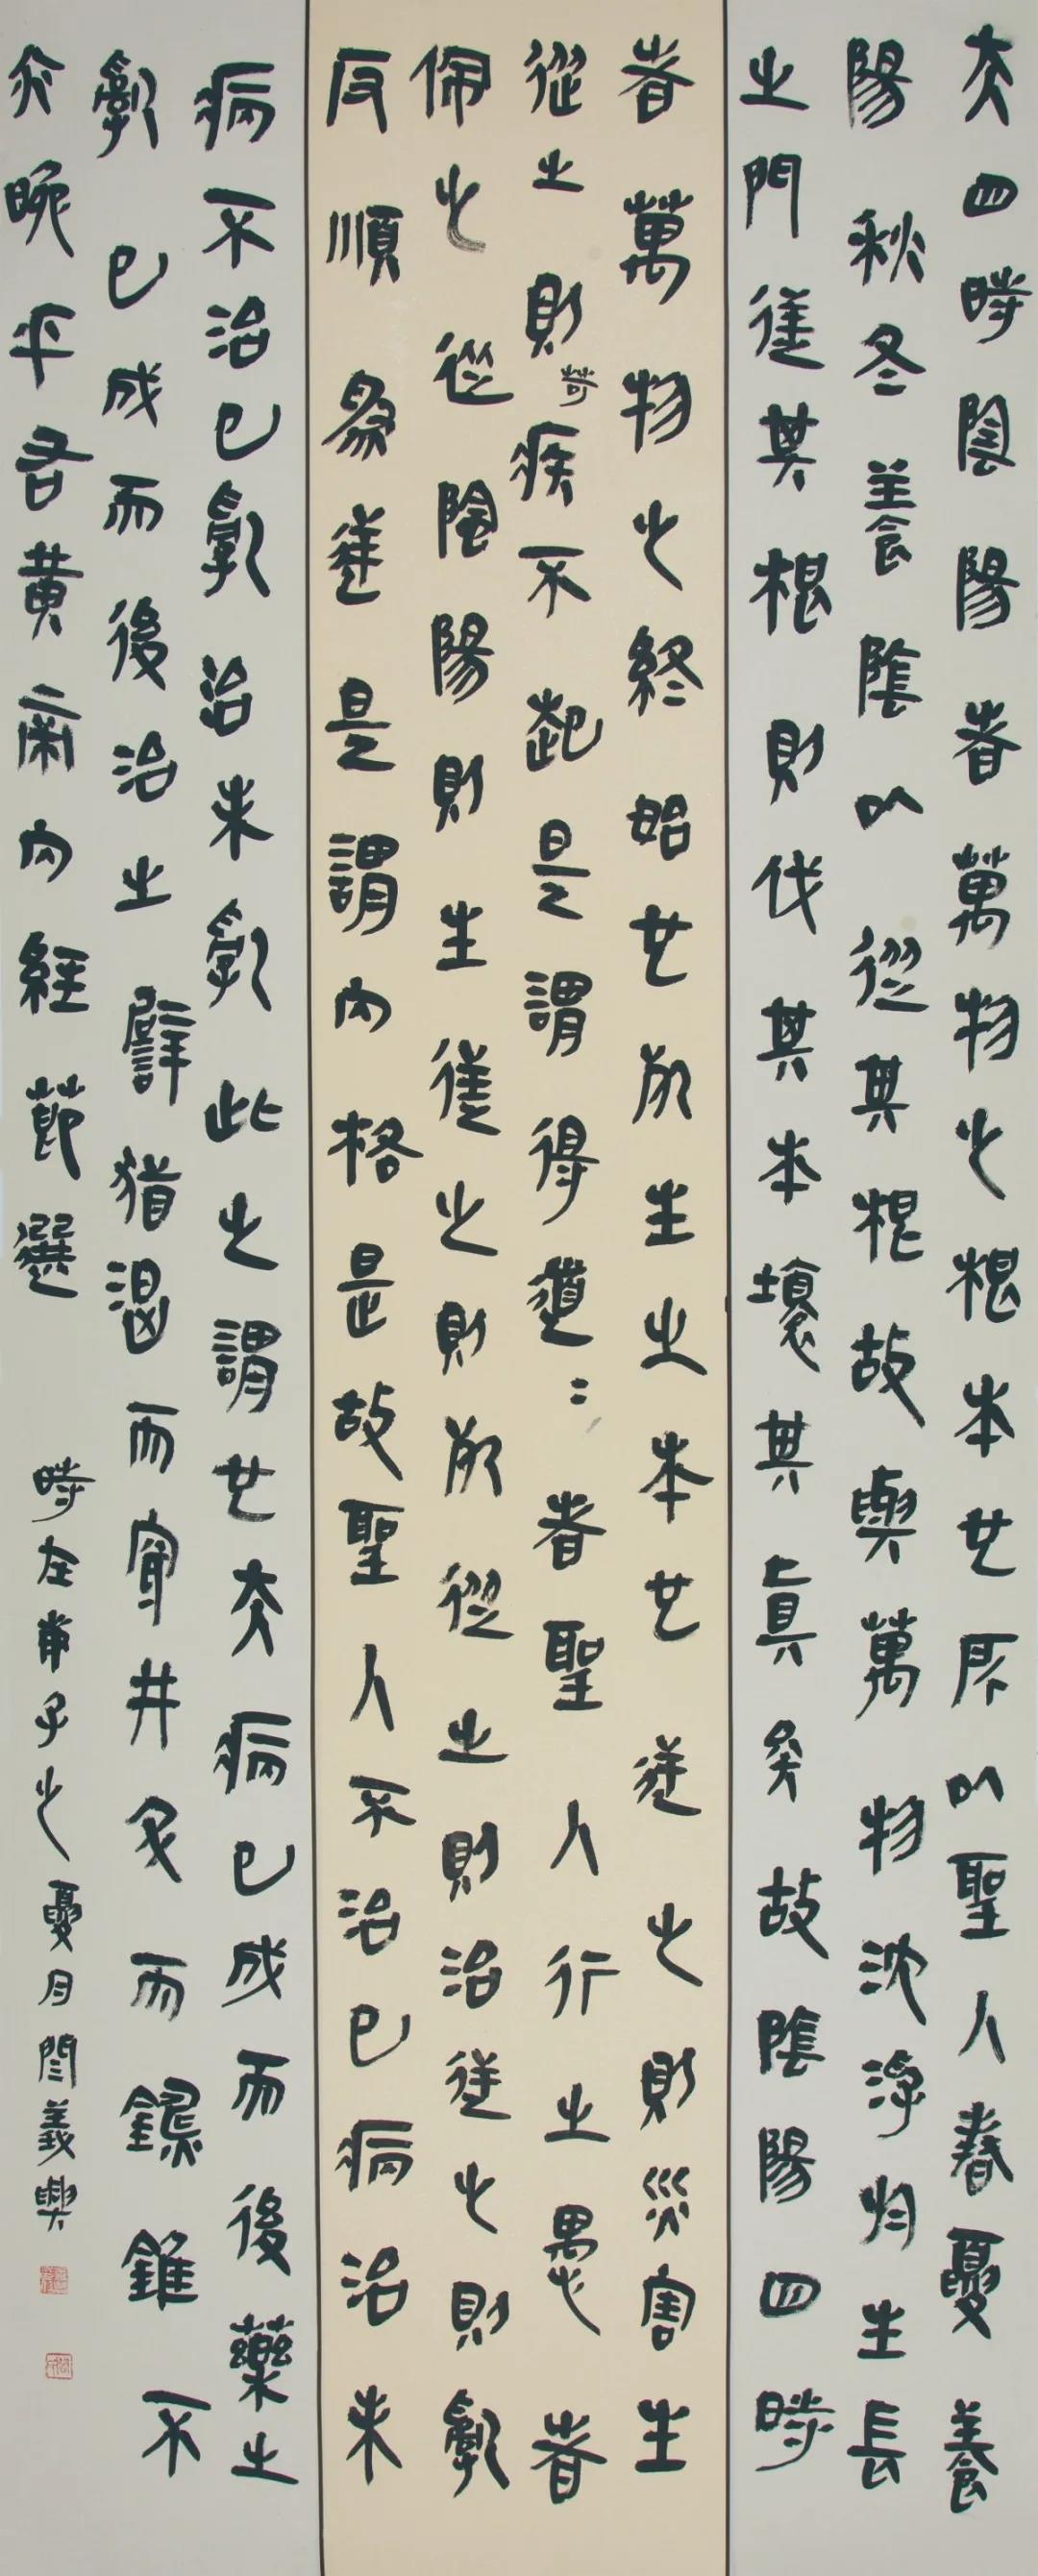 夫四時陰陽者萬物之根本也所以聖人春夏養
陽秋冬養陰以從其根故與萬物沈浮於生長
之門逆其根則伐其本壞其真矣故陰陽四時
者萬物之終始也死生之本也逆之則災害生
從之則苛疾不起是謂得道〻者聖人行之愚者
佩之從陰陽則生逆之則死從之則治逆之則亂
反順為逆是謂內格是故聖人不治已病治未
病不治已亂治未亂此之謂也夫病已成而後藥之
亂已成而後治之譬猶渴而穿井鬥而鑄錐不
亦晚乎右黃帝內經節選
時在甲子之夏月閆義興